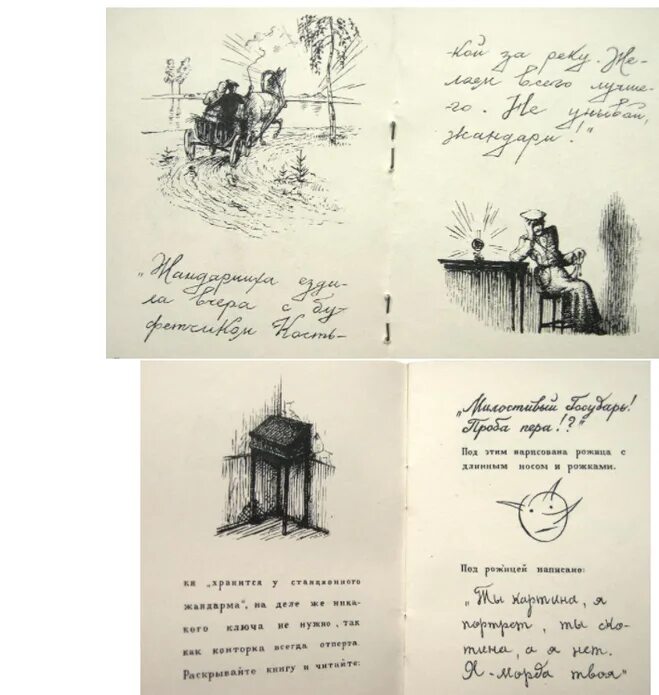 „Жандармиха езди-
ла вчера с бу-
фетчиком Кость-
кой за реку. Же-
лаем всего лучше-
го. Не унывай,
жандарм!"
ки „хранится у станционного
жандарма", на деле же ника-
кого ключа не нужно, так
как конторка всегда отперта.
Раскрывайте книгу и читайте:
„Милостивый Государь!
Проба пера!?"
Под этим нарисована рожица с
длинным носом и рожками.
Под рожицей написано:
„Ты картина, я
портрет, ты ско-
тина, а я нет.
Я - морда твоя"